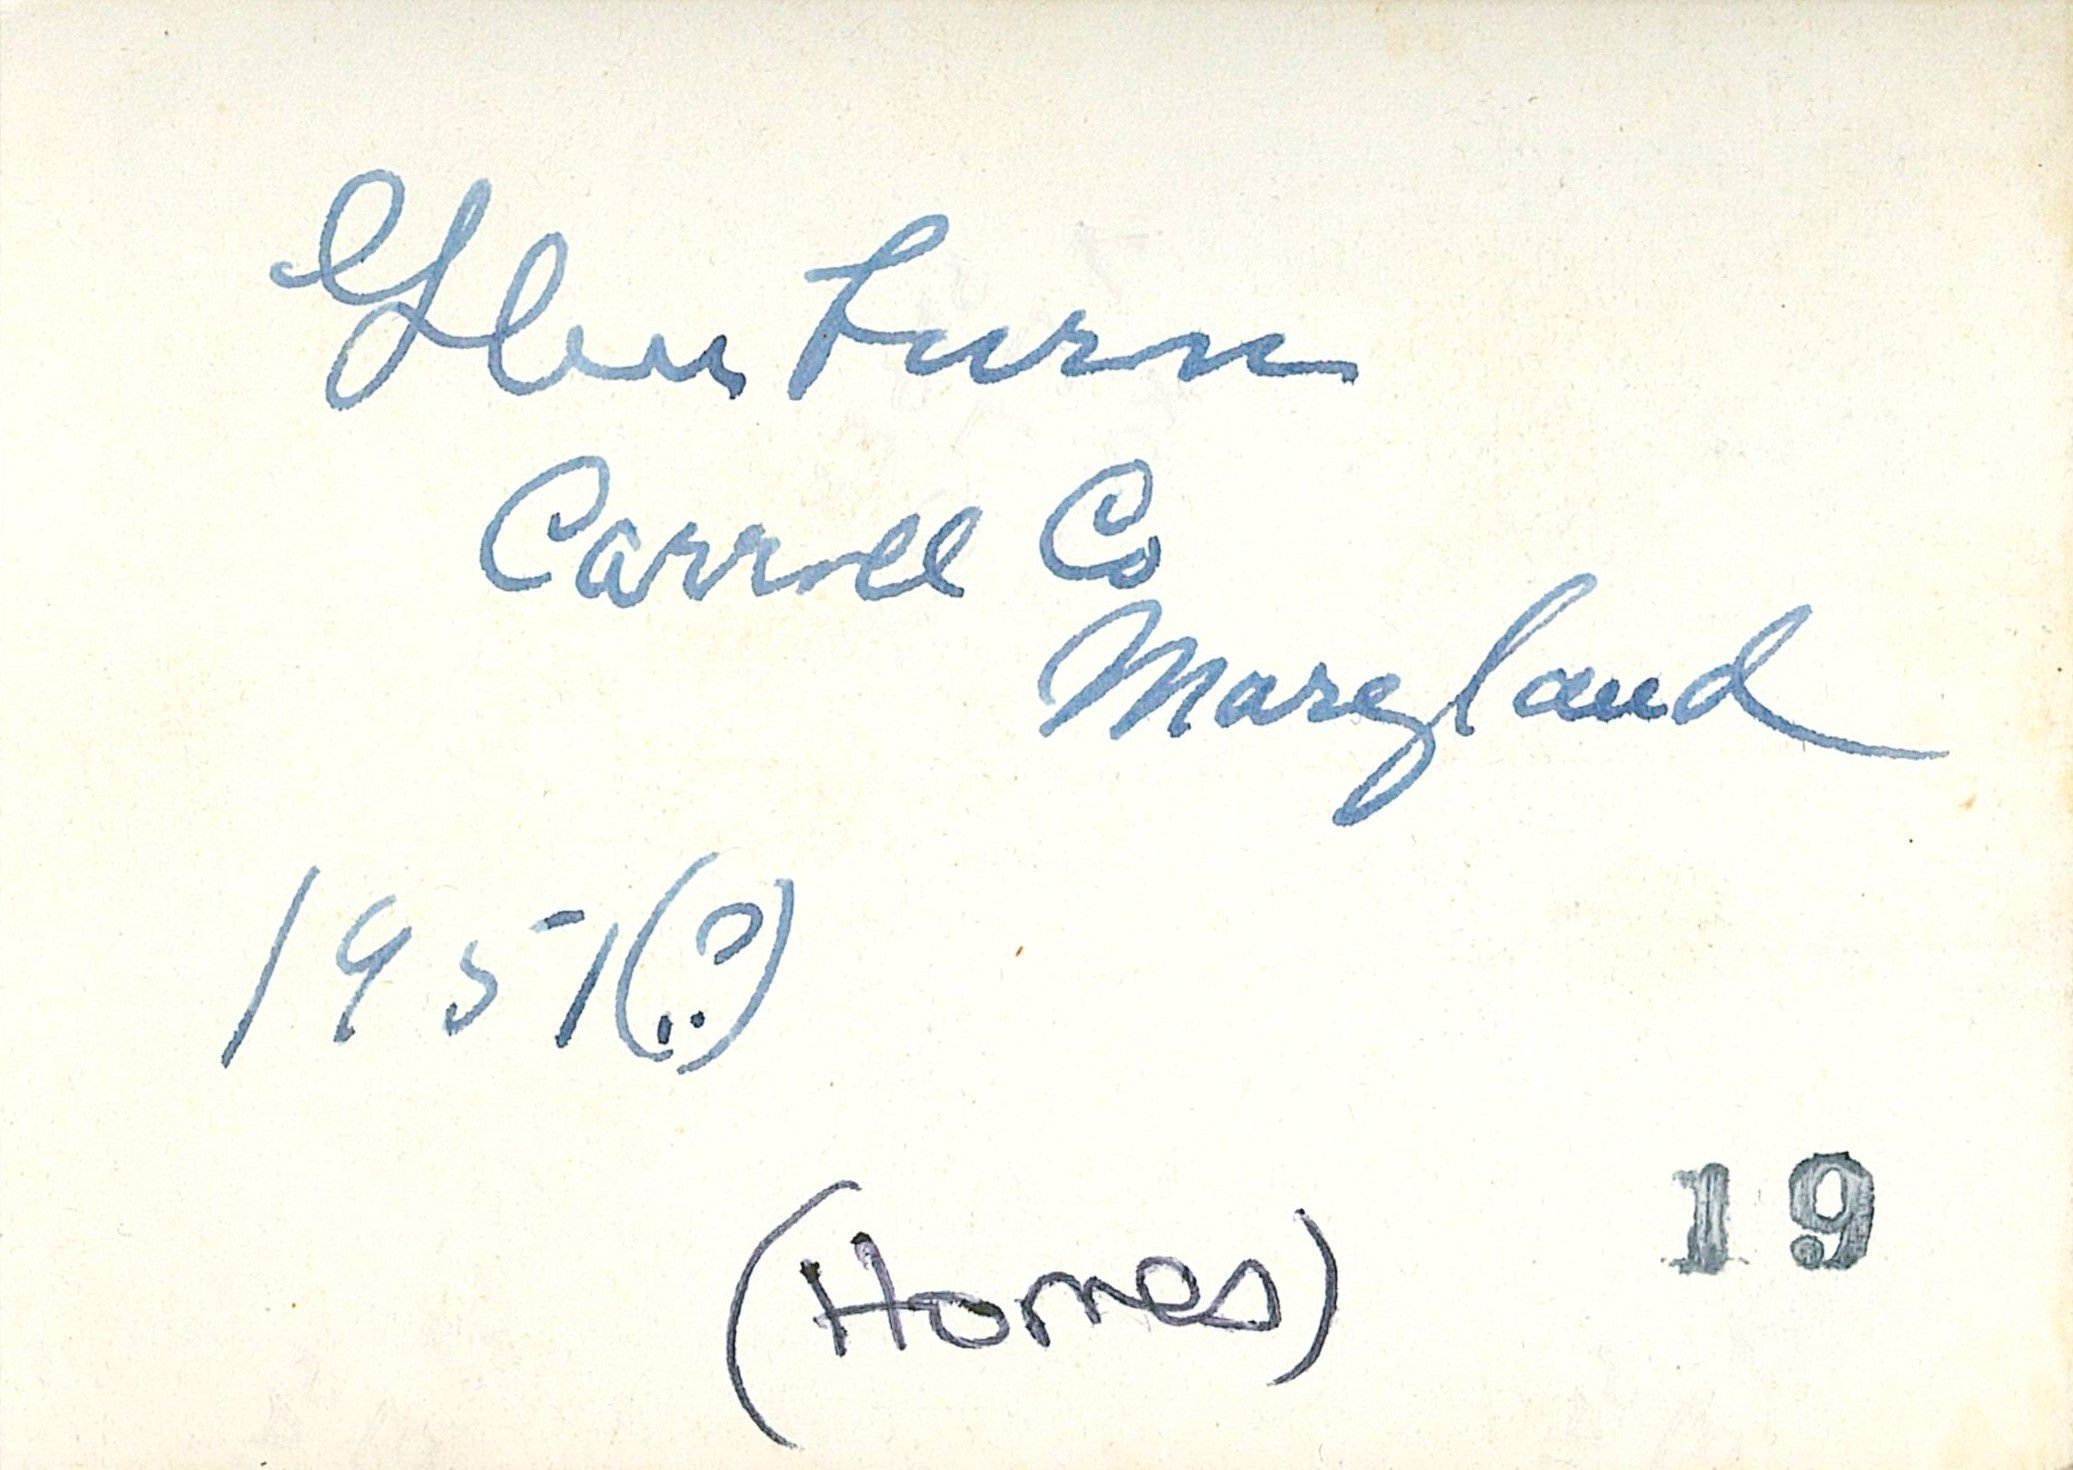 Glen
Carroll Co
Maryland
1951(?)
(Homes)
19